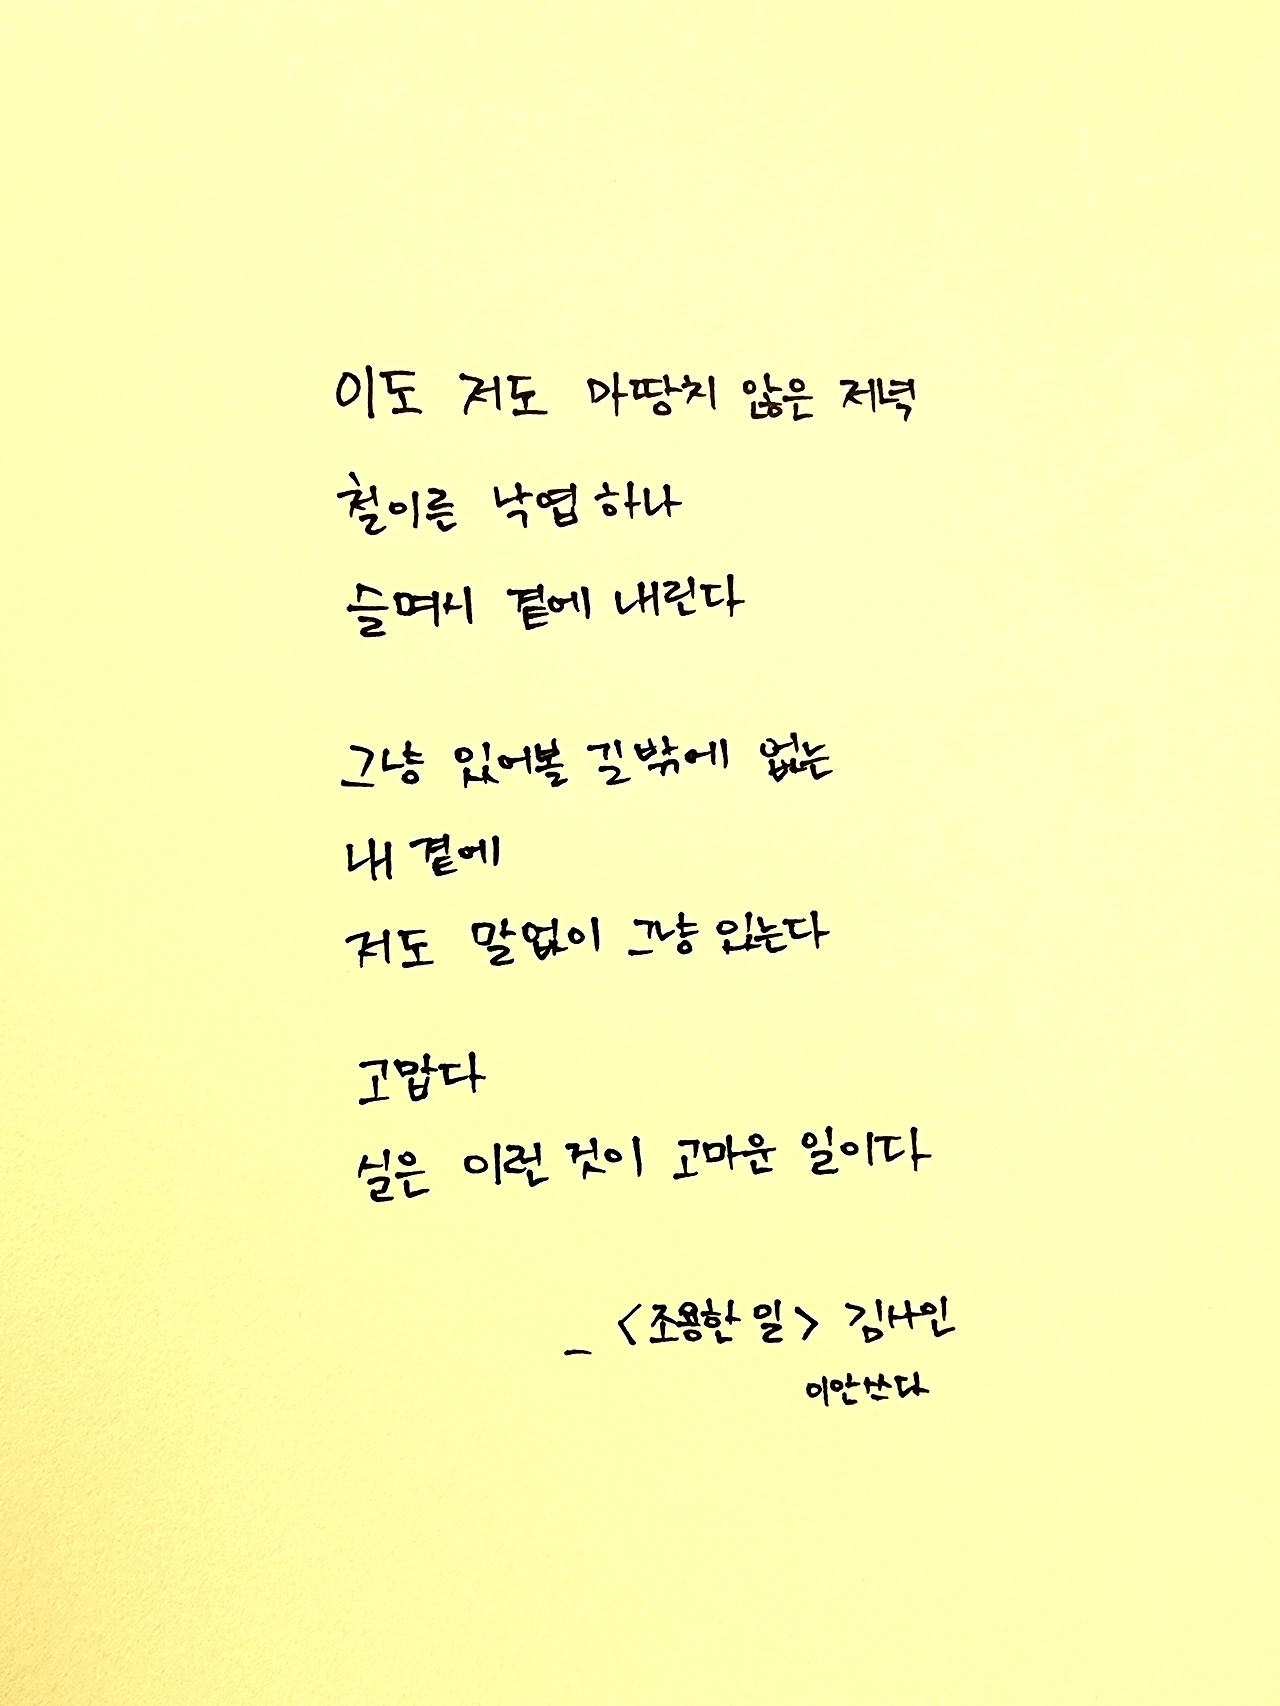 이도 저도 마땅치 않은 저녁
철이른 낙엽 하나
슬며시 곁에 내린다
그냥 있어볼 길밖에 없는
내 곁에
저도 말없이 그냥 있는다
고맙다
실은 이런 것이 고마운 일이다
_ <조용한 일> 김사인
이안쓰다